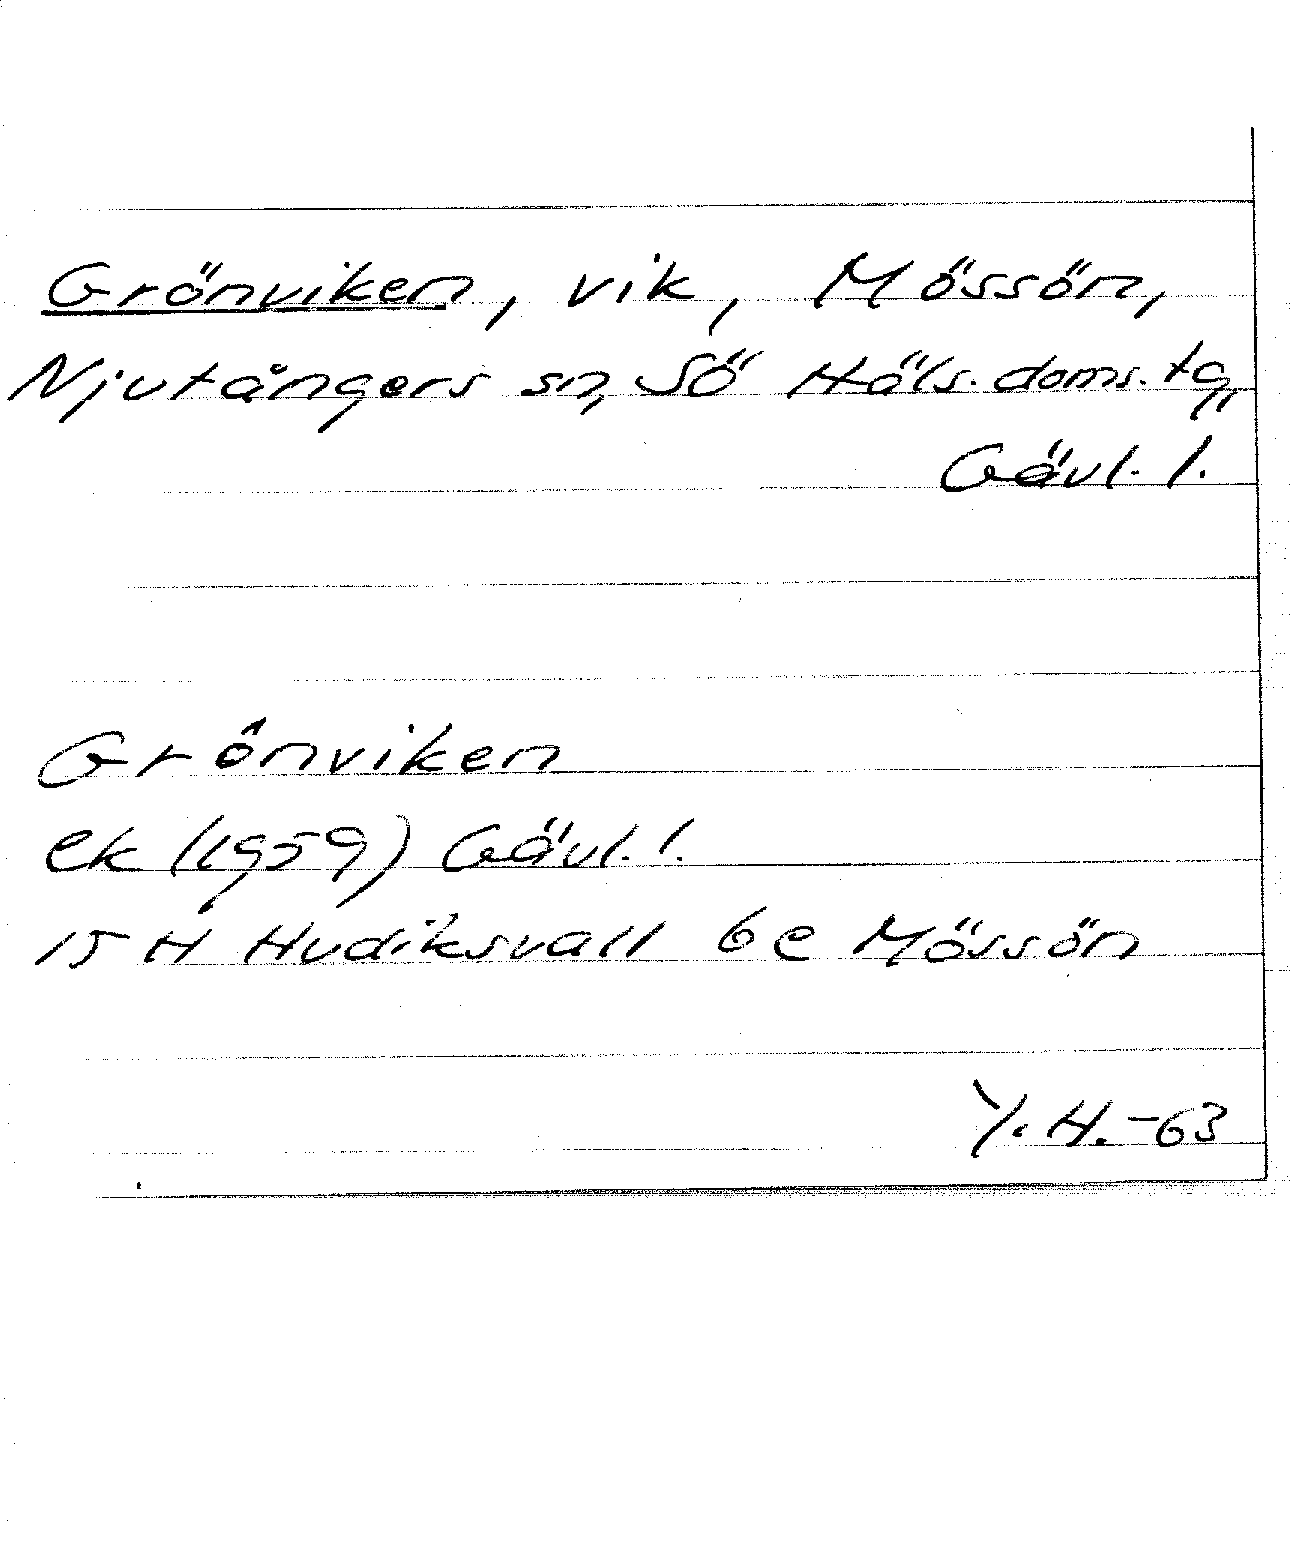 Grönviken, vik, Mössön,
Njutångers sn, Sö Häls. doms. tg,
Gävl. l.
Grönviken
ek (1959) Gävl. l.
15 H Hudiksvall 6e Mössön
Y. H. -63